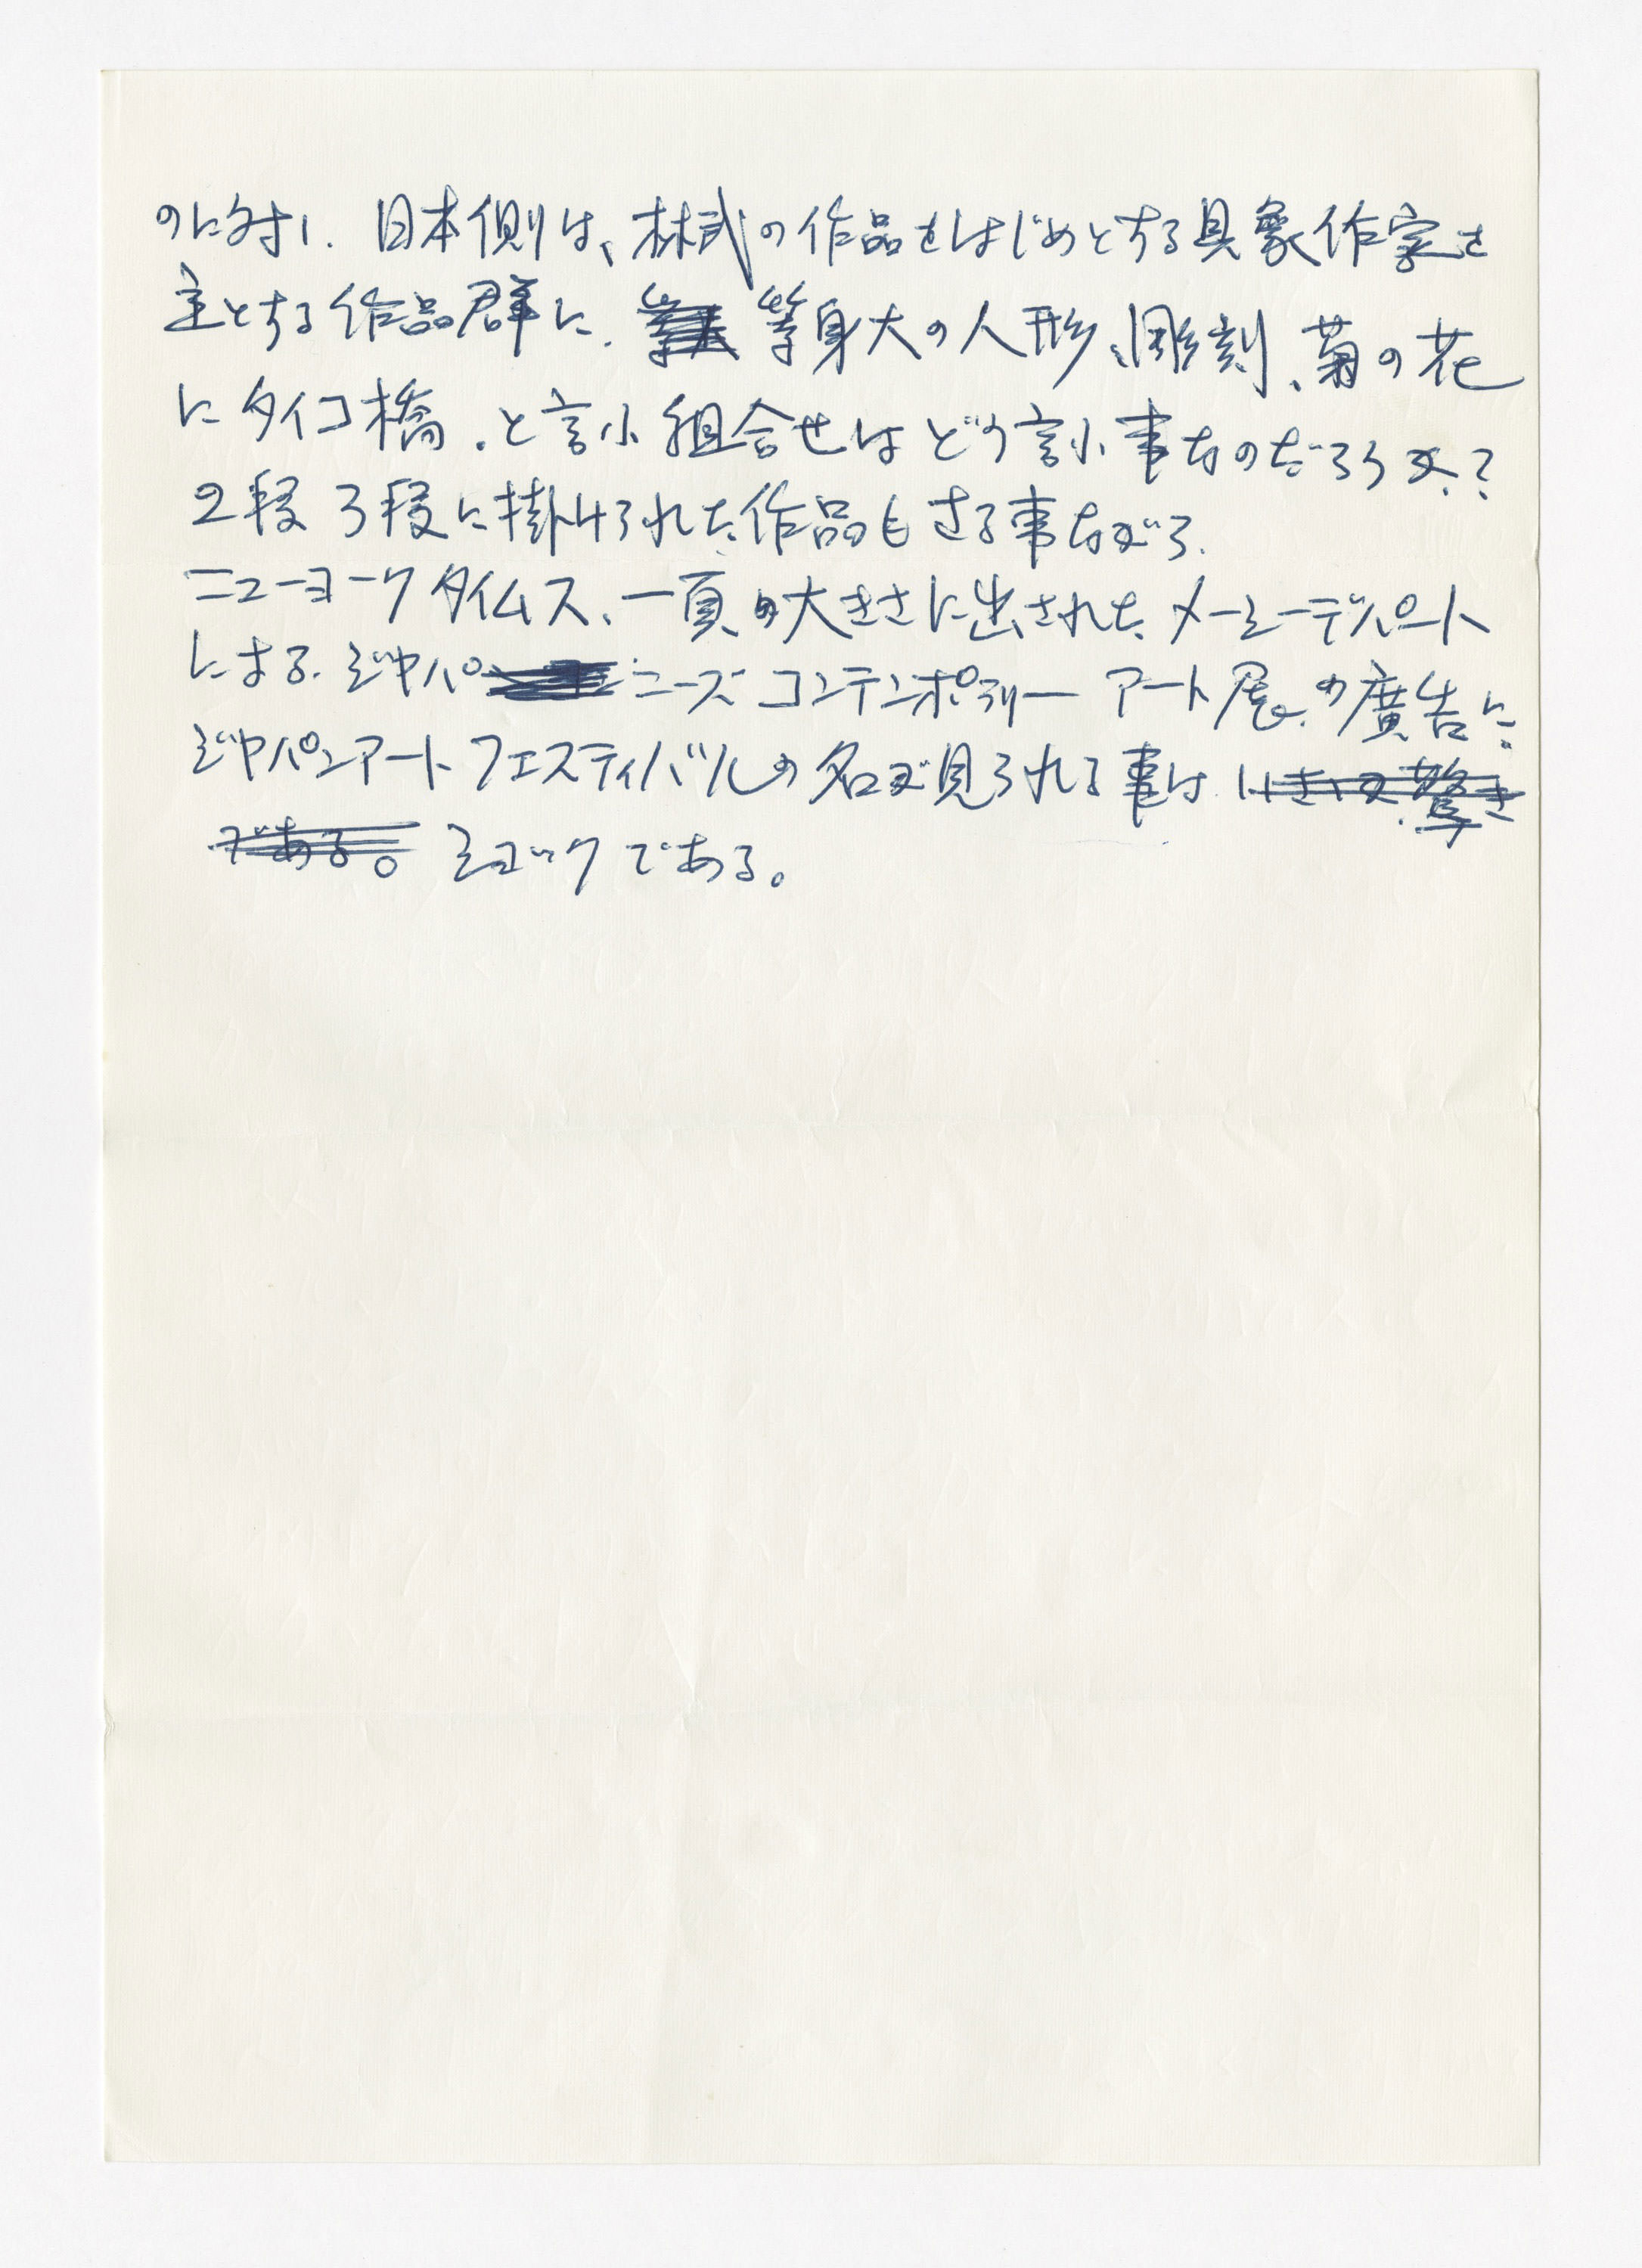 のに対し、日本側は、林武の作品をはじめとする具象作家を
主とする作品群に、等身大の人形、彫刻、菊の花
にタイコ橋、と言ふ組合せはどう言ふ事なのだろうか?
2段3段に掛けられた作品もさる事ながら、
ニューヨークタイムス、一頁の大きさに出されたメーシーデパート
による、ジャパニーズコンテンポラリーアート展、の廣告に、
ジャパンアートフェスティバルの名が見られる事は いささか驚き
である。ショックである。